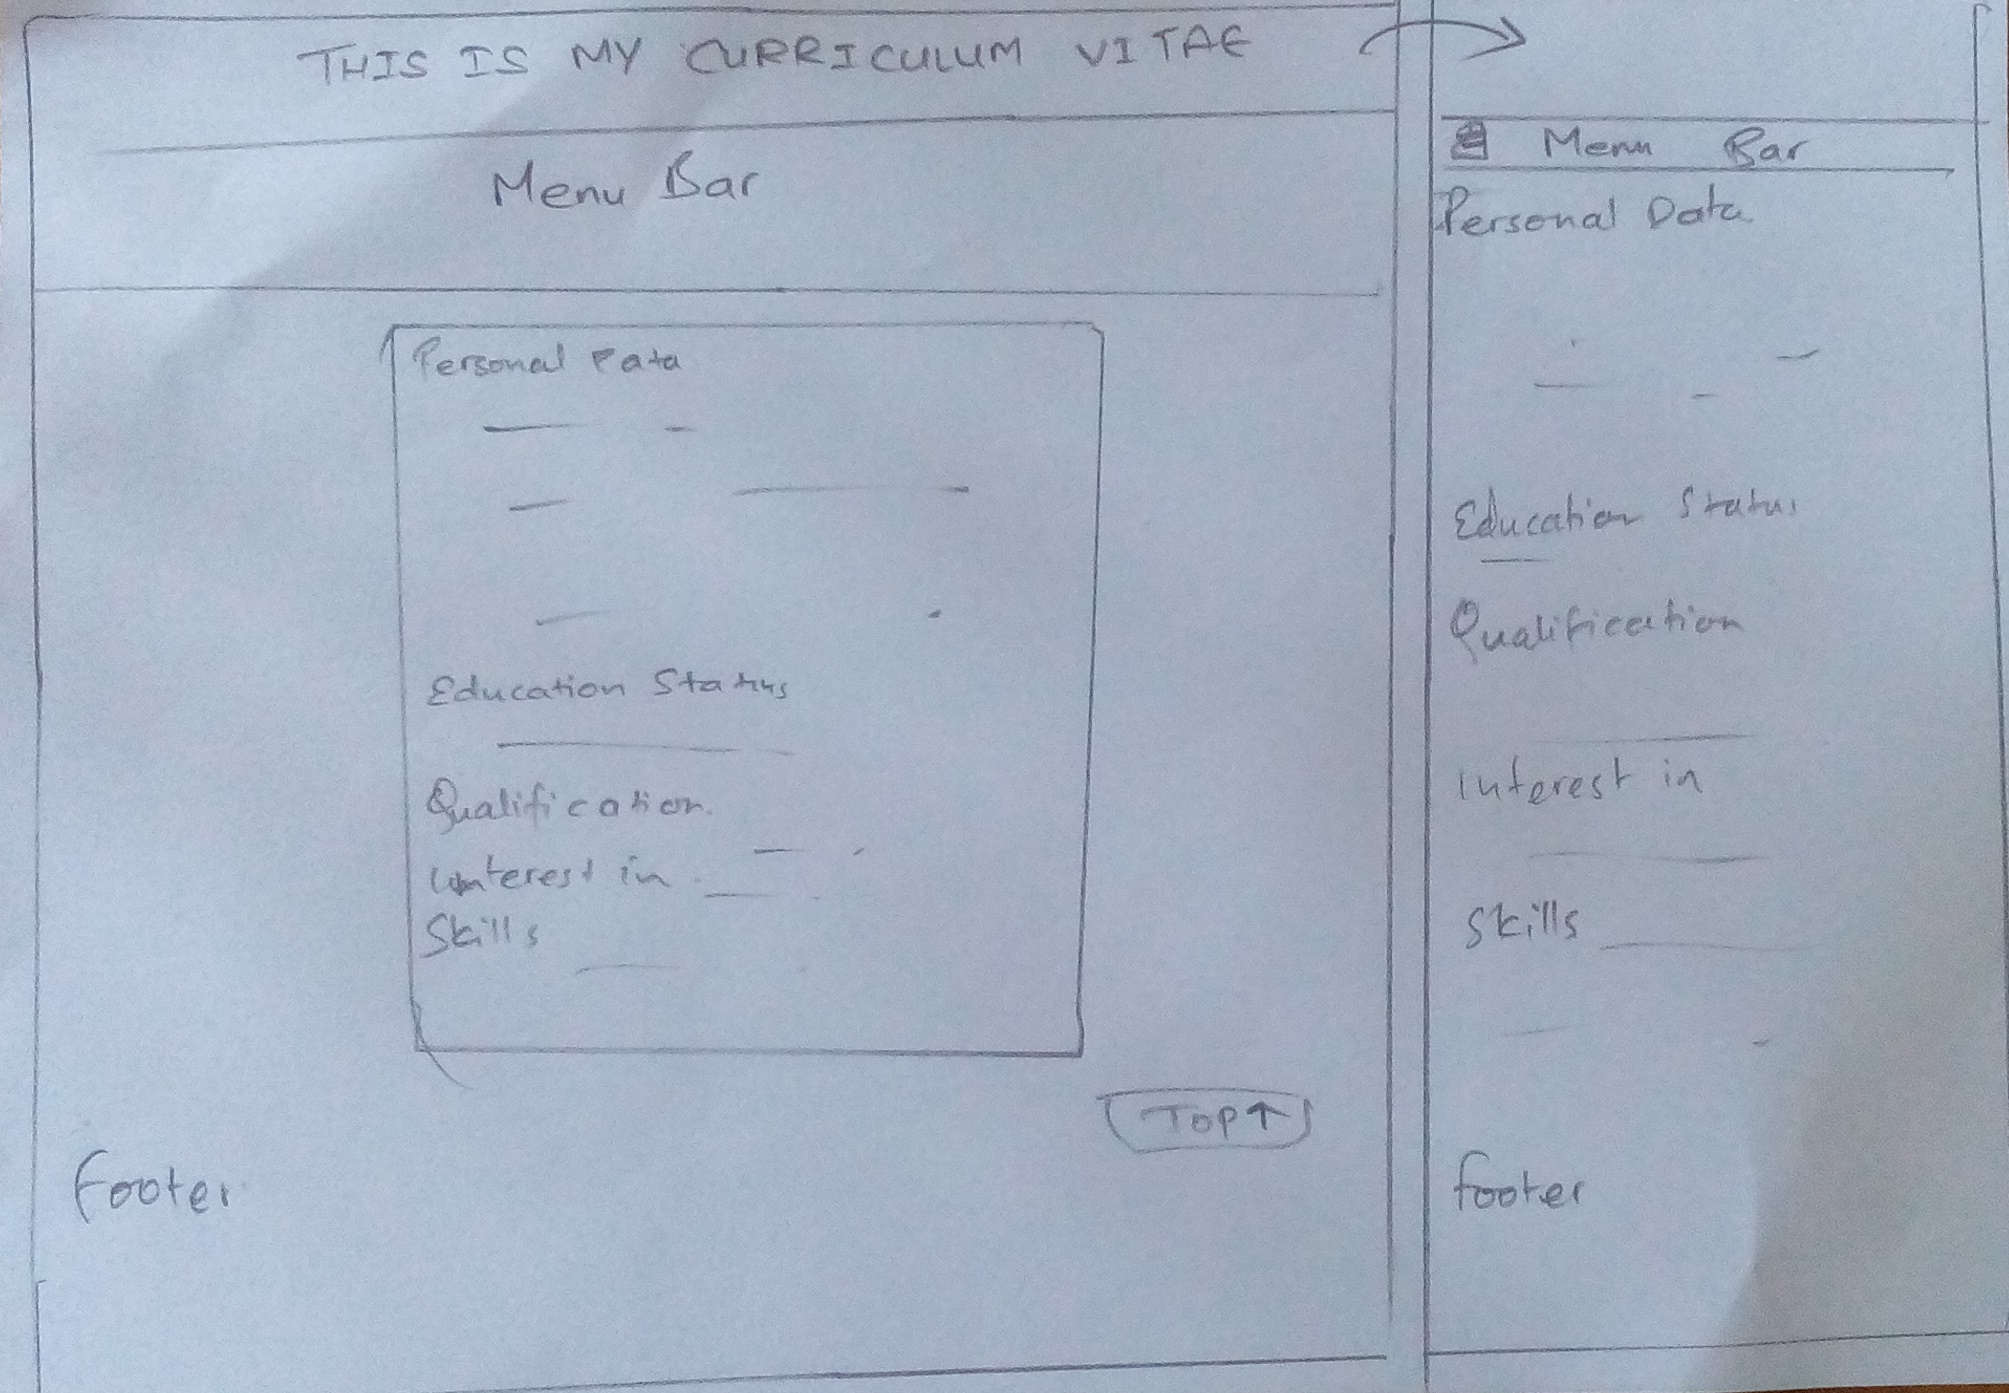 THIS IS MY CURRICULUM VITAE
Menu Bar
Personal Fata
Education Status
Qualification.
interest in
Skills
TOP↑
footer
Menu Bar
Personal Data
Education Status
Qualification
interest in
Skills
footer